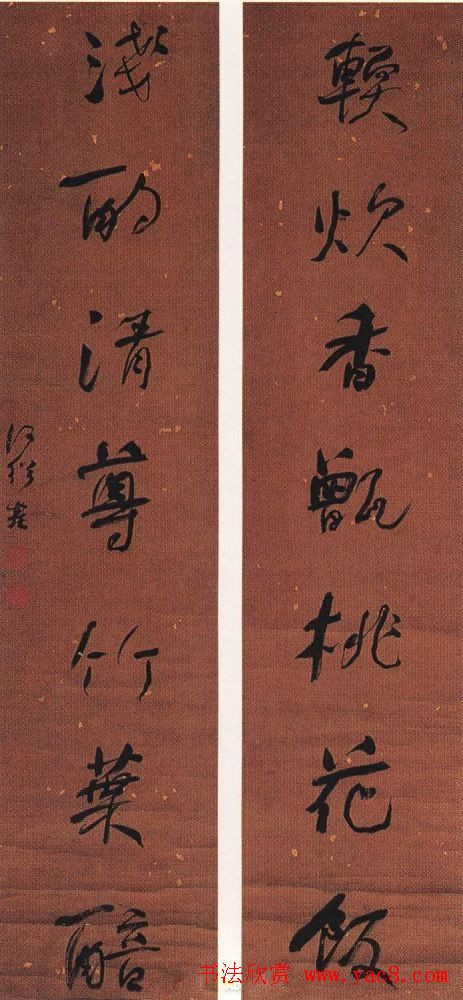 輭炊香甑桃花飯
淺酌清尊竹葉醅
书法欣赏 www.yac8.com